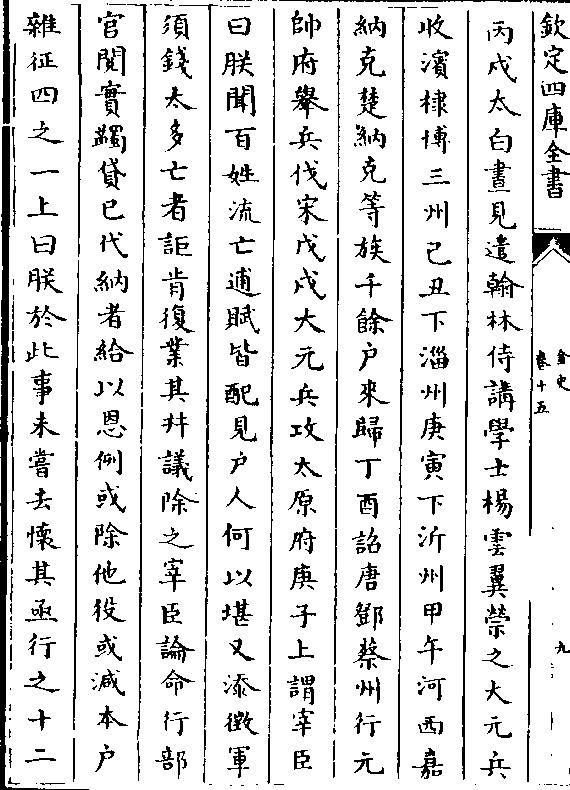 欽定四庫全書
金史
卷十五
九
丙戌太白晝見遣翰林侍講學士楊雲翼禜之大元兵
收濱棣博三州己丑下淄州庚寅下沂州甲午河西嘉
納克楚納克等族千餘户來歸丁酉詔唐鄧蔡州行元
帥府舉兵伐宋戊戌大元兵攻太原府庚子上謂宰臣
曰朕聞百姓流亡逋賦皆配見户人何以堪又添徵軍
須錢太多亡者詎肯復業其并議除之宰臣論命行部
官閱實蠲貸已代納者給以恩例或除他役或減本户
雜征四之一上曰朕於此事未嘗去懷其亟行之十二